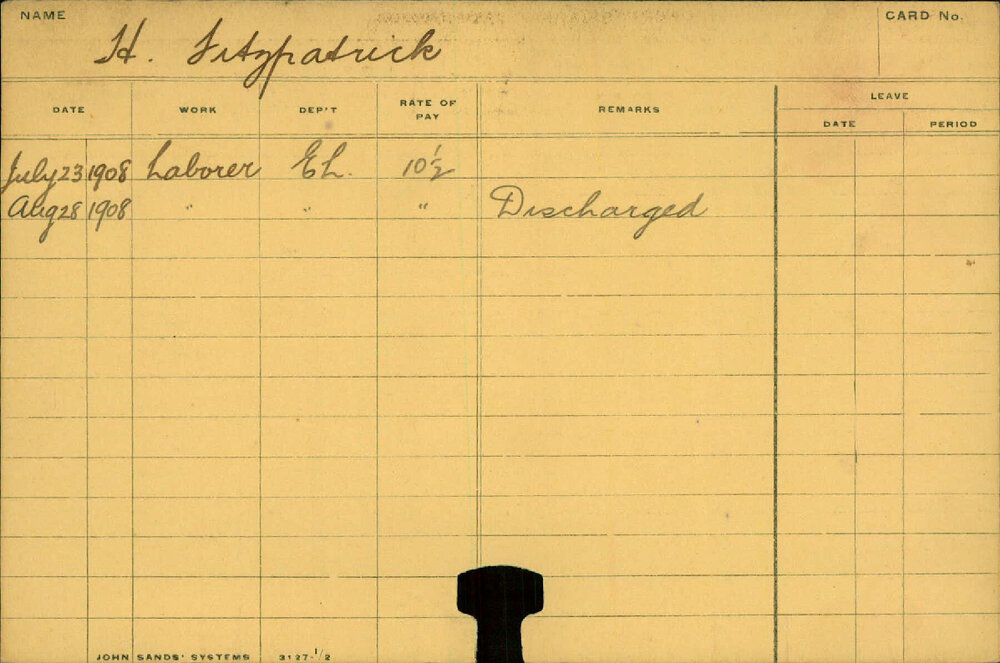 NAME CARD No.
H. Fitzpatrick
DATE WORK DEP'T RATE OF PAY REMARKS LEAVE
DATE PERIOD
July 23 1908 Laborer Eh. 10 1/2
Aug 28 1908 " " " Discharged
JOHN SANDS' SYSTEMS 3127-1/2